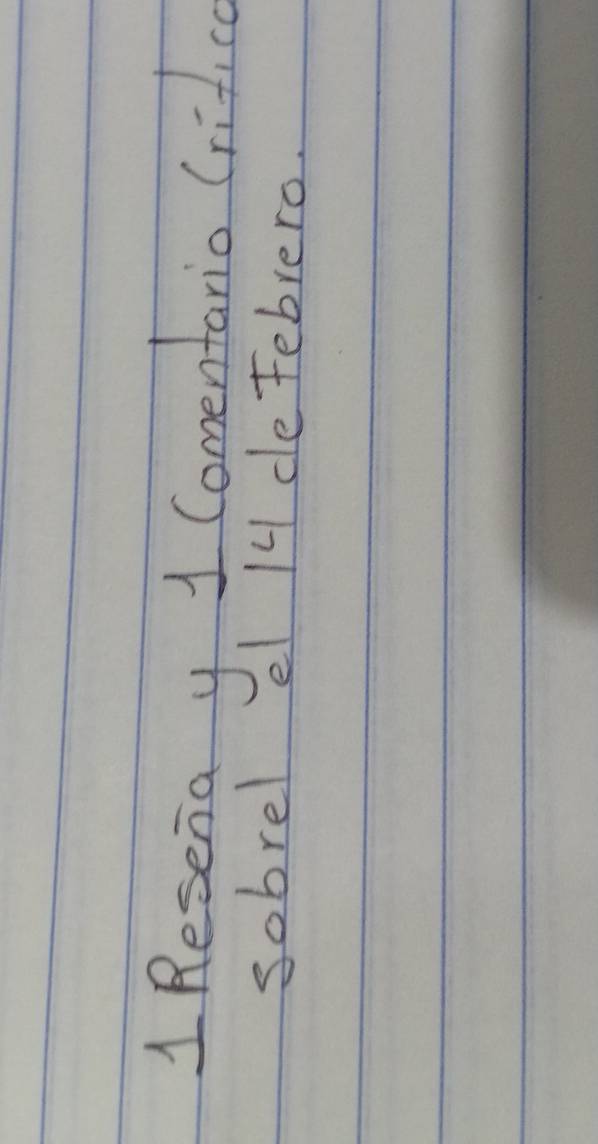 1 Reseña y 1 Comentario Crítico
sobrel el 14 de Febrero.